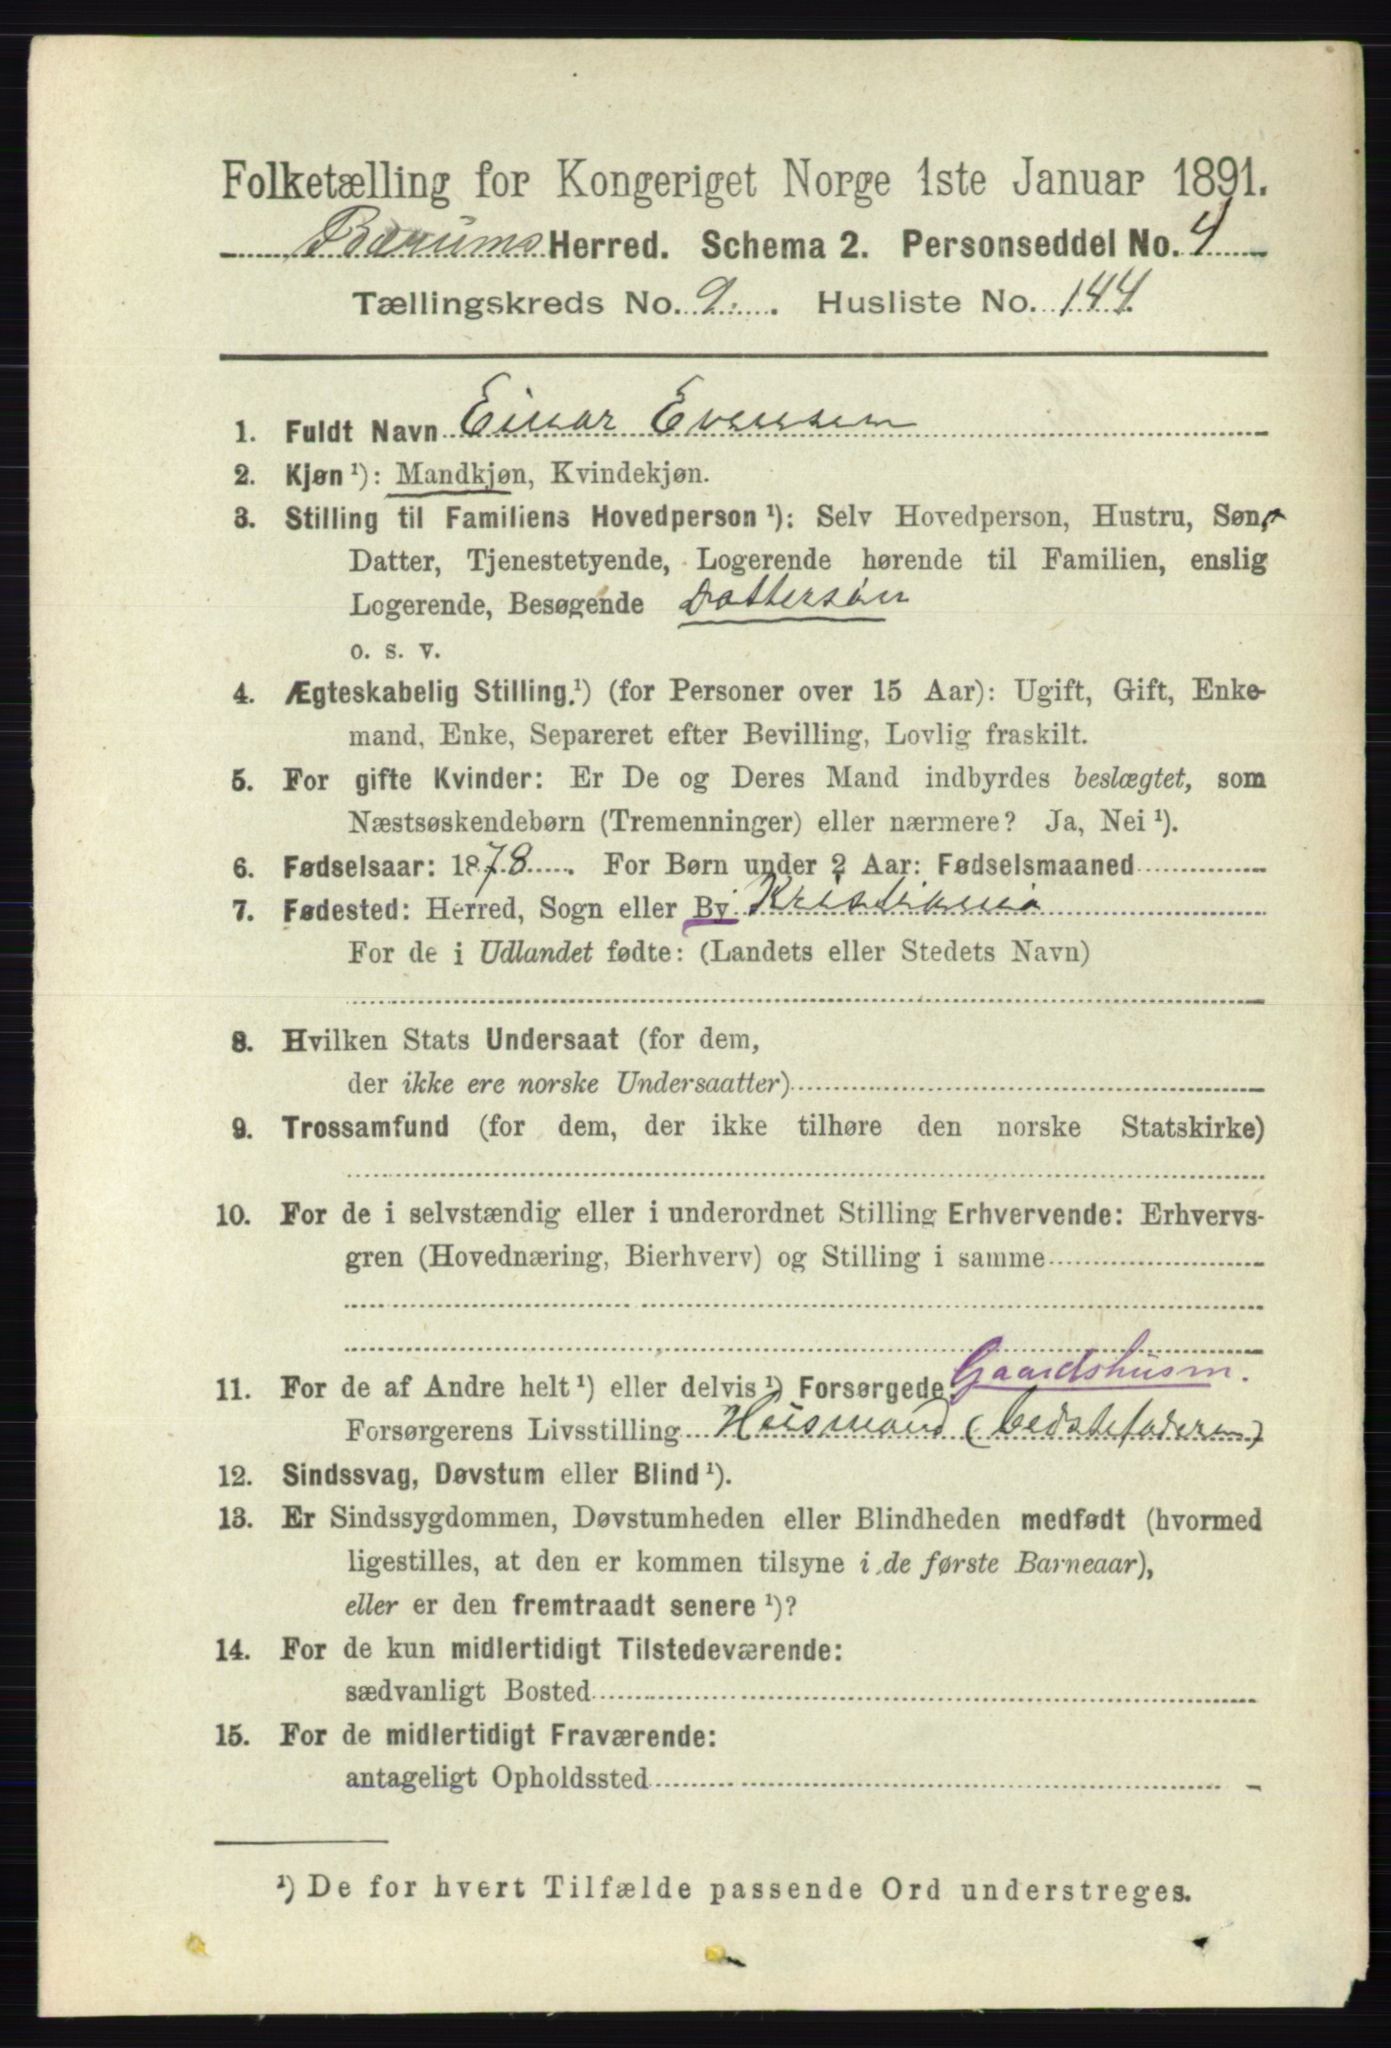 Folketælling for Kongeriget Norge 1ste Januar 1891.
Bærums Herred. Schema 2. Personseddel No. 4
Tællingskreds No. 9. Husliste No. 144.
1. Fuldt Navn Einar Evensen
2. Kjøn ¹): Mandkjøn, Kvindekjøn.
3. Stilling til Familiens Hovedperson ¹): Selv Hovedperson, Hustru, Søn,
Datter, Tjenestetyende, Logerende hørende til Familien, enslig
Logerende, Besøgende Dattersøn
o. s. v.
4. Ægteskabelig Stilling.¹) (for Personer over 15 Aar): Ugift, Gift, Enke-
mand, Enke, Separeret efter Bevilling, Lovlig fraskilt.
5. For gifte Kvinder: Er De og Deres Mand indbyrdes beslægtet, som
Næstsøskendebørn (Tremenninger) eller nærmere? Ja, Nei ¹).
6. Fødselsaar: 1878. For Børn under 2 Aar: Fødselsmaaned
7. Fødested: Herred, Sogn eller By Kristiania
For de i Udlandet fødte: (Landets eller Stedets Navn)
8. Hvilken Stats Undersaat (for dem,
der ikke ere norske Undersaatter)
9. Trossamfund (for dem, der ikke tilhøre den norske Statskirke)
10. For de i selvstændig eller i underordnet Stilling Erhvervende: Erhvervs-
gren (Hovednæring, Bierhverv) og Stilling i samme
Gaardshusm.
11. For de af Andre helt ¹) eller delvis ¹) Forsørgede:
Forsørgerens Livsstilling Husmand (bedstefaderen)
12. Sindssvag, Døvstum eller Blind ¹).
13. Er Sindssygdommen, Døvstumheden eller Blindheden medfødt (hvormed
ligestilles, at den er kommen tilsyne i de første Barneaar),
eller er den fremtraadt senere ¹)?
14. For de kun midlertidigt Tilstedeværende:
sædvanligt Bosted
15. For de midlertidigt Fraværende:
antageligt Opholdssted
¹) De for hvert Tilfælde passende Ord understreges.